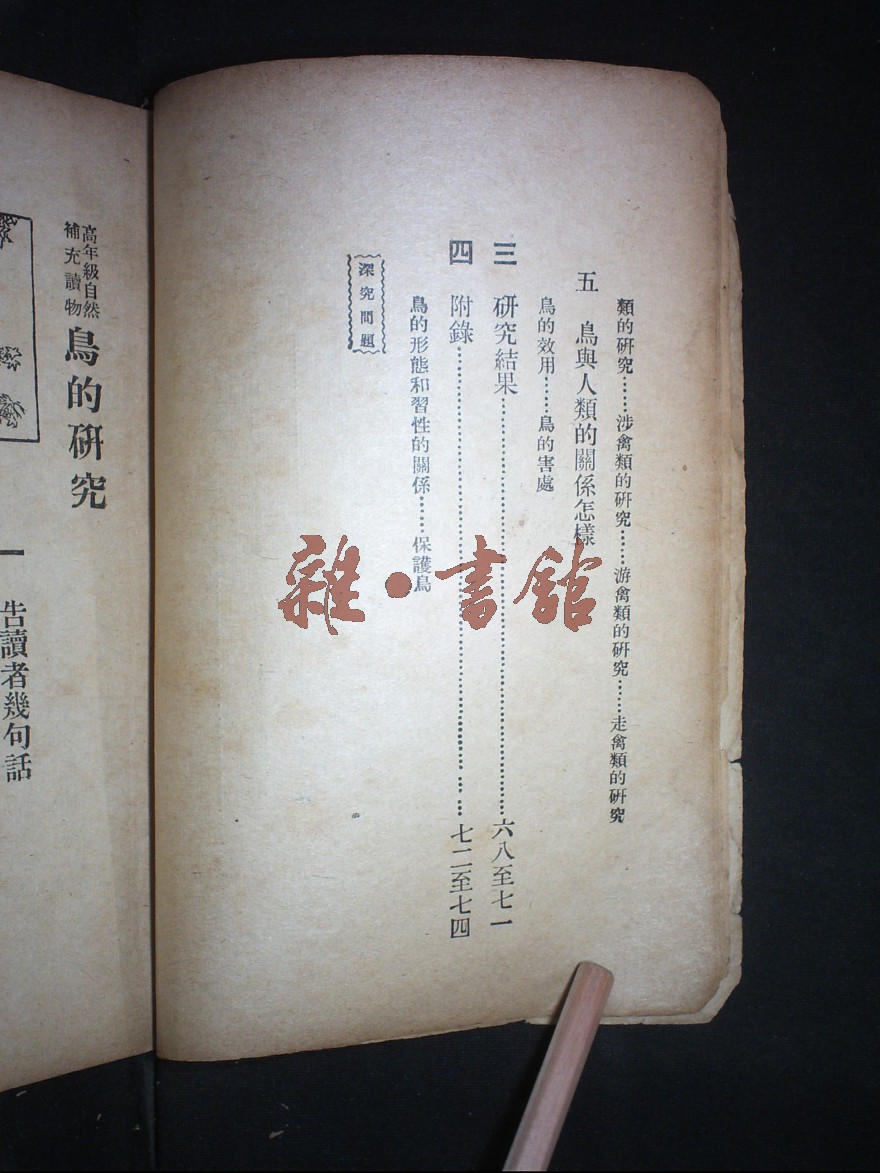 類的研究……涉禽類的研究……游禽類的研究……走禽類的研究
五 鳥與人類的關係怎樣
鳥的效用……鳥的害處
三 研究結果……六八至七一
四 附錄……七二至七四
鳥的形態和習性的關係……保護鳥
深究問題
高年級自然
補充讀物
鳥的研究
一 告讀者幾句話
雜·書館